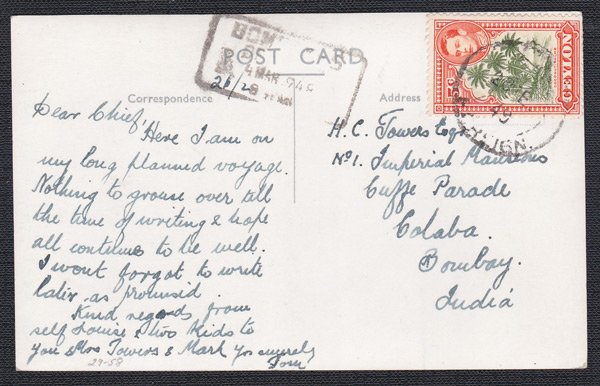 POST CARD
BOM
4 MAR 949
26/2
Correspondence
Address
CEYLON
49
Dear Chief,
Here I am on
my long planned voyage.
Nothing to grouse over till
the time of writing & hope
all continues to be well.
I wont forget to write
later as promised.
Kind regards from
self Louise & two kids to
you & Mrs Towers & Mark Yrs sincerely
Tom
29-58
H.C. Towers Esqr
No 1. Imperial Mansions
Cuffe Parade
Colaba.
Bombay.
India